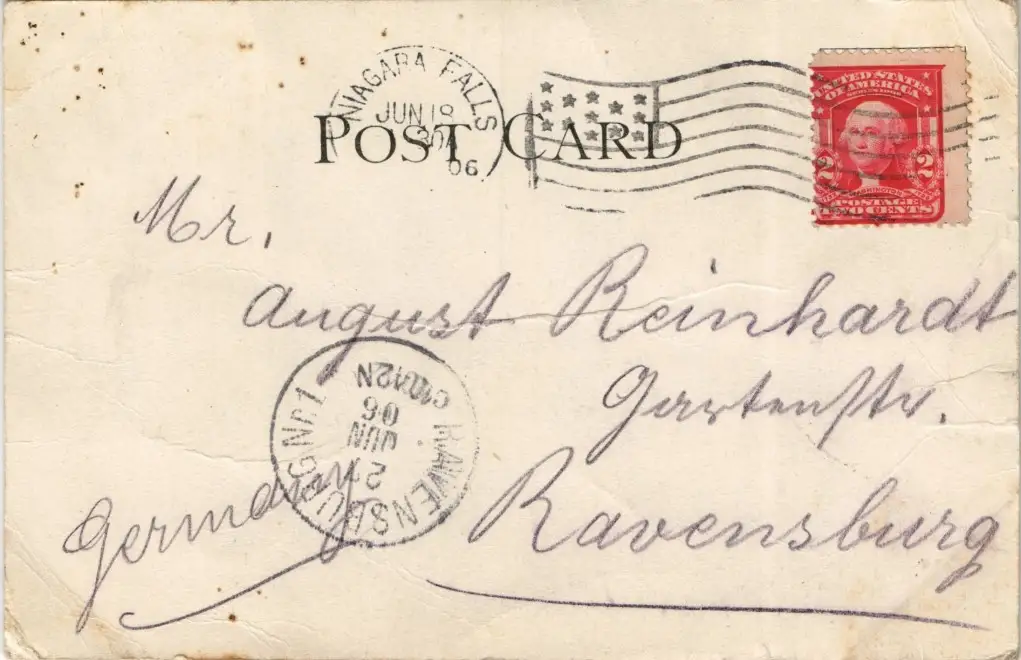 NIAGARA FALLS
JUN 18
30A
06
POST CARD
UNITED STATES
OF AMERICA
SERIES 1902
2 2
WASHINGTON
POSTAGE
TWO CENTS
Mr.
August Reinhardt
Gartenstr.
Ravensburg
Germany
RAVENSBURG No 1
JUN
06
12N